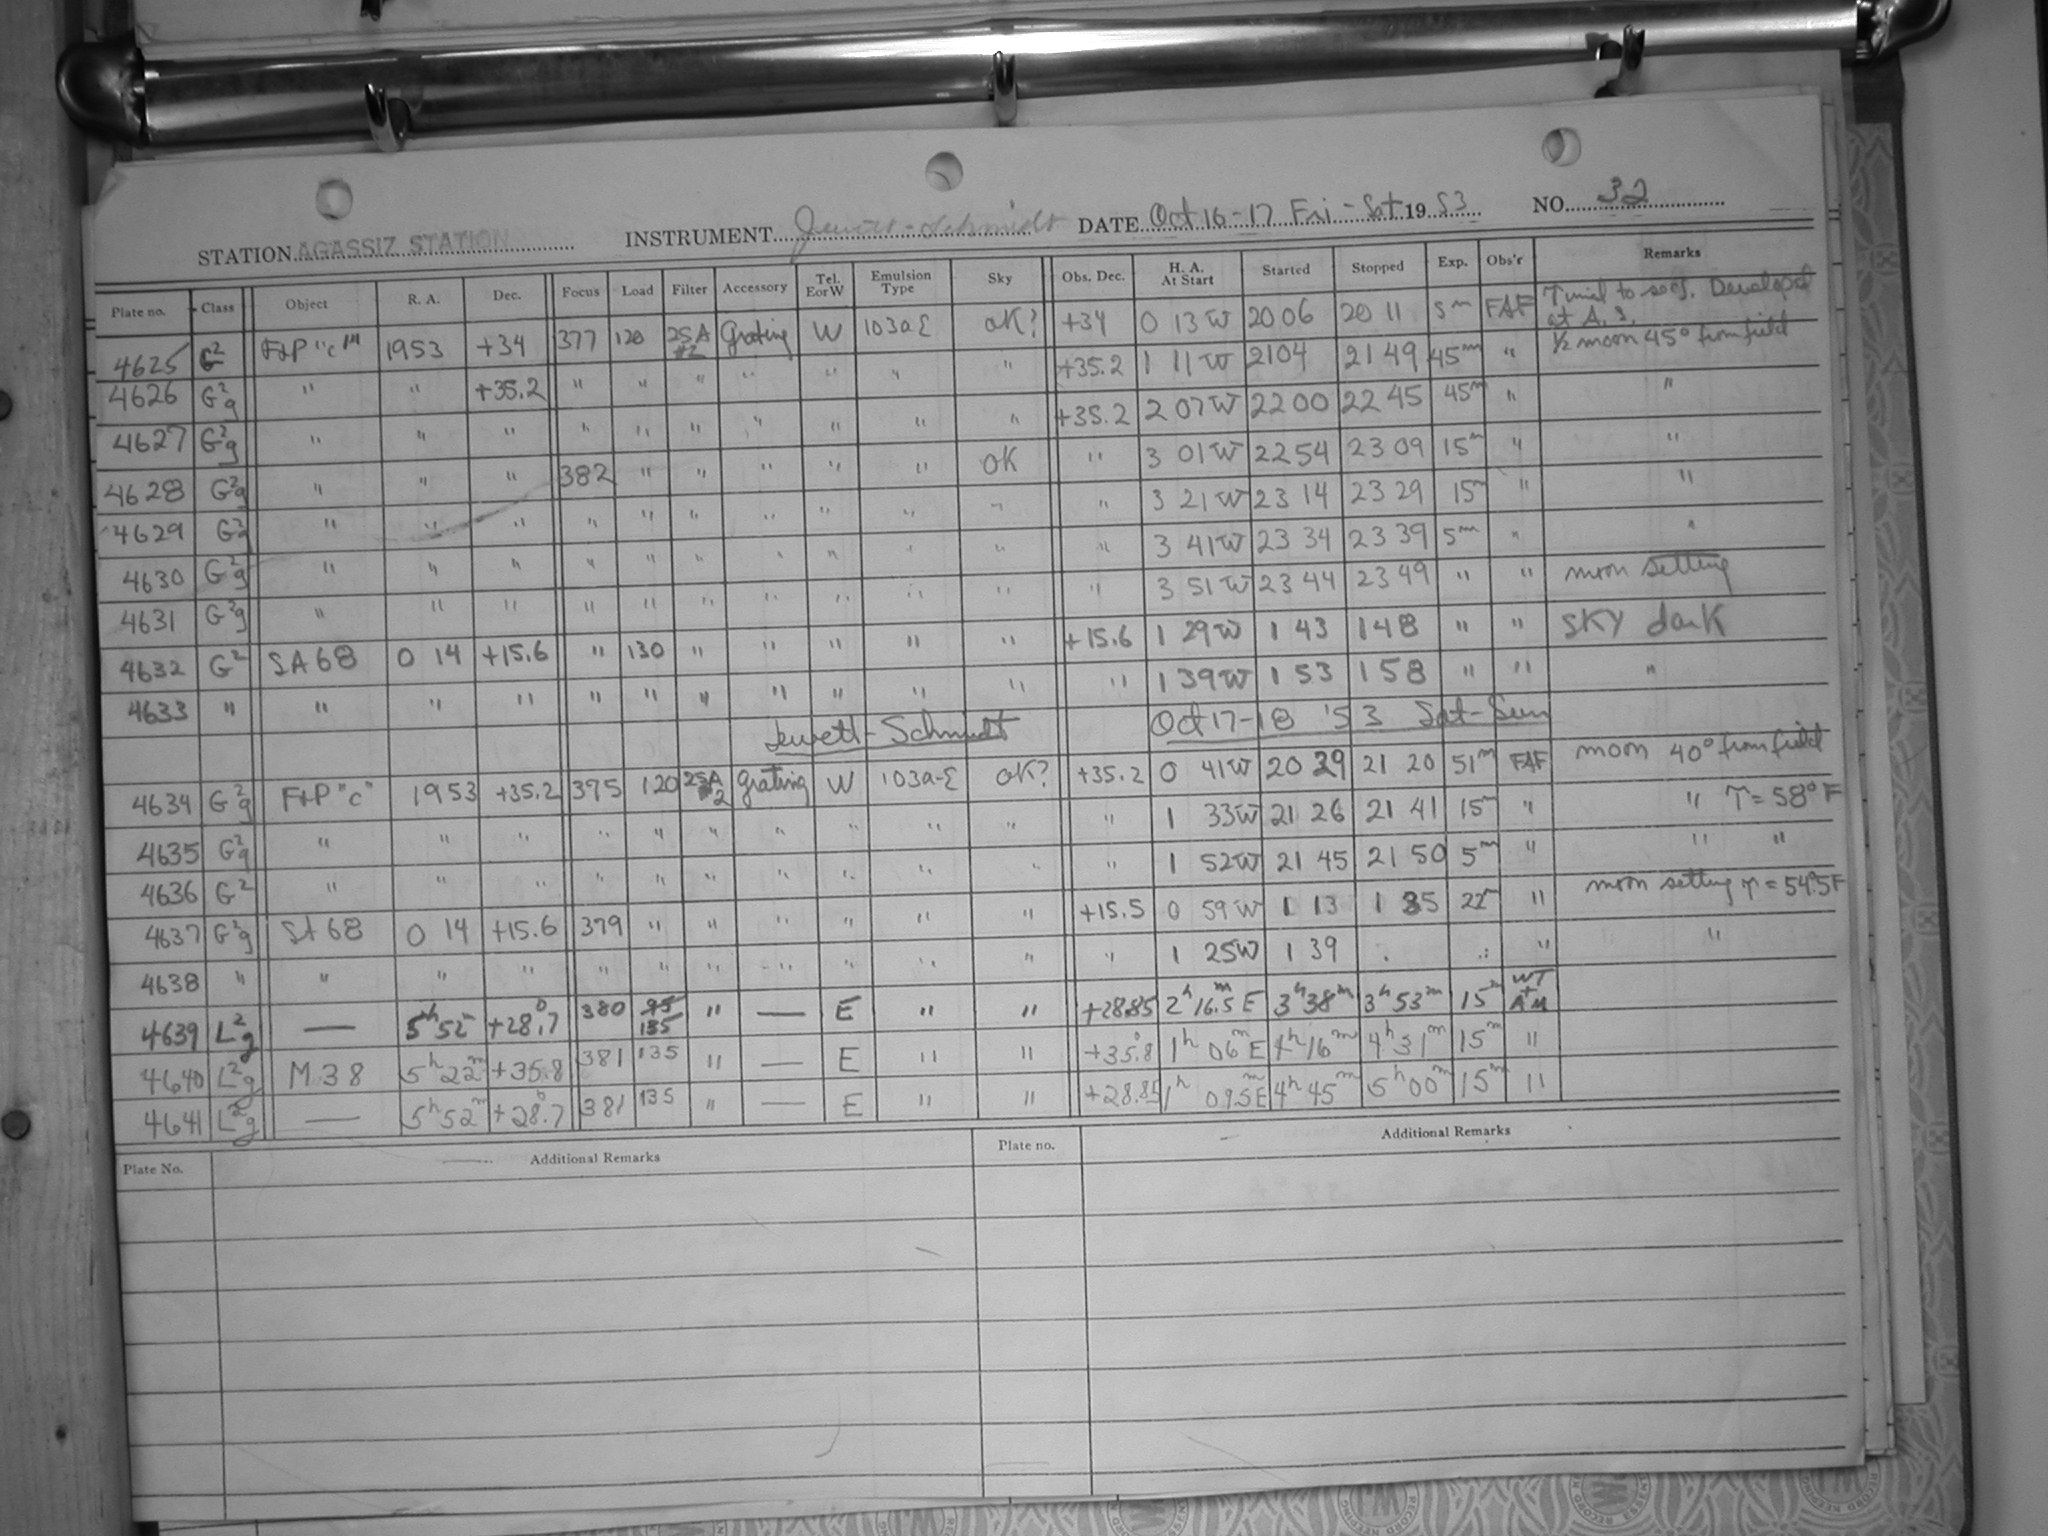 STATION AGASSIZ STATION INSTRUMENT Jewett-Schmidt DATE Oct 16-17 Fri-Sat 19 53 NO. 32
Plate no. Class Object R. A. Dec. Focus Load Filter Accessory Tel. E or W Emulsion Type Sky Obs. Dec. H. A. At Start Started Stopped Exp. Obs'r Remarks
4625 G2 F+P "c" 1953 +34 377 120 25A #2 Grating W 103aE OK? +34 0 13W 20 06 20 11 5m FAF to Developed at A.S.
4626 G2g " " +35.2 " " " " " " " +35.2 1 11W 2104 21 49 45m " 1/2 moon 45° from field
4627 G2g " " " " " " " " " " +35.2 2 07W 22 00 22 45 45m " "
4628 G2g " " " 382 " " " " " OK " 3 01W 22 54 23 09 15m " "
4629 G2 " " " " " " " " " " " 3 21W 23 14 23 29 15m " "
4630 G2g " " " " " " " " " " " 3 41W 23 34 23 39 5m " "
4631 G2g " " " " " " " " " " " 3 51W 23 44 23 49 " " moon setting
4632 G2 SA68 0 14 +15.6 " 130 " " " " " +15.6 1 29W 1 43 1 48 " " SKY dark
4633 " " " " " " " " " " " " 1 39W 1 53 1 58 " " "
Jewett-Schmidt Oct 17-18 '53 Sat-Sun
4634 G2g F+P "c" 1953 +35.2 375 120 25A #2 grating W 103a-E OK? +35.2 0 41W 20 29 21 20 51m FAF moon 40° from field
4635 G2g " " " " " " " " " " " 1 33W 21 26 21 41 15m " " T=58°F
4636 G2 " " " " " " " " " " " 1 52W 21 45 21 50 5m " " "
4637 G2g SA 68 0 14 +15.6 379 " " " " " " +15.5 0 59W 1 13 1 35 22m " moon setting T=54.5F
4638 " " " " " " " " " " " " 1 25W 1 39 . .. " "
4639 L2g — 5h 52 +28°.7 380 95 135 " — E " " +28.85 2h 16.5m E 3h 38m 3h 53m 15m WT + AM
4640 L2g M38 5h 22m +35.8 381 135 " — E " " +35°.8 1h 06m E 4h 16m 4h 31m 15m "
4641 L2g — 5h 52m +28°.7 381 135 " — E " " +28.85 1h 09.5m E 4h 45m 5h 00m 15m "
Plate No. Additional Remarks Plate no. Additional Remarks